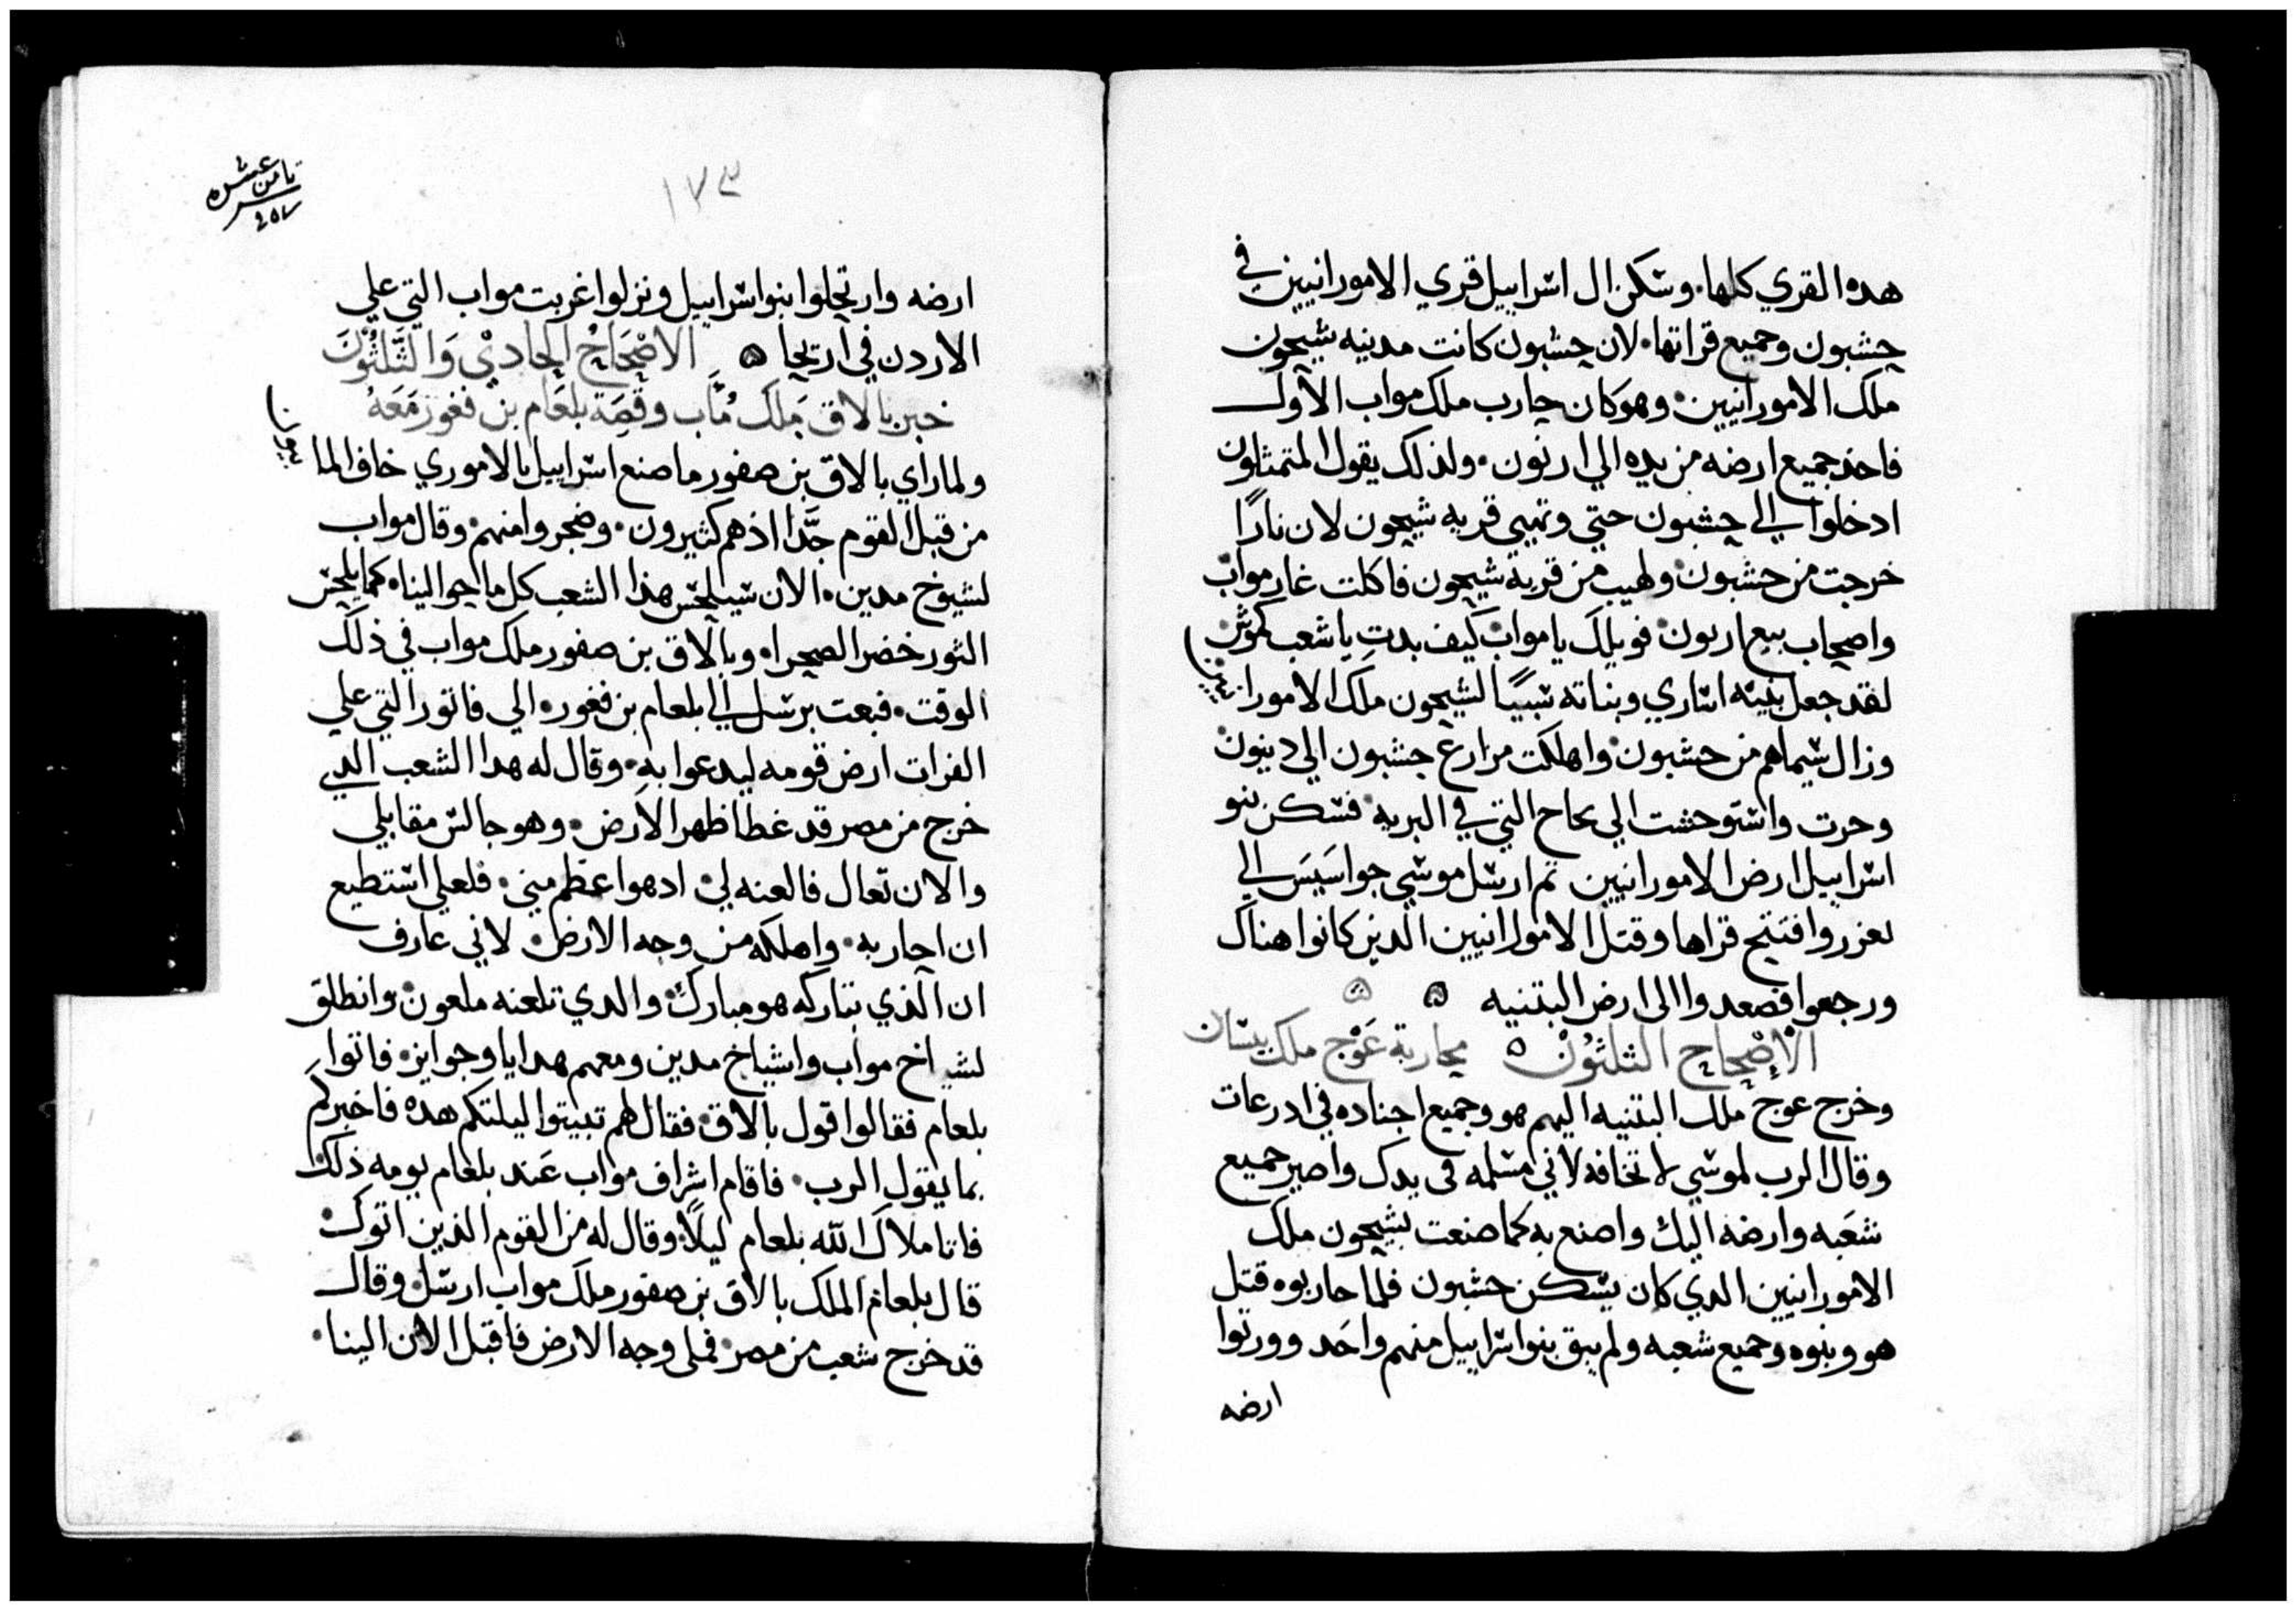 هده القري كلها. وسكن ال اسراييل قري الامورانيين في
حشبون وجميع قراتها. لان حشبون كانت مدينه سيحون
ملك الامورانيين. وهو كان حارب ملك مواب الاول
فاخد جميع ارضه من يده الي ارنون. ولذلك يقول المتمثلون
ادخلوا الي حشبون حتي وتهيي قريه سيحون لان نارًا
خرجت من حشبون ولهيب من قريه سيحون فاكلت غار مواب
واصحاب بيع ارنون فويلك يا مواب كيف بدت يا شعب كموش
لقد جعل بنيه اساري وبناته سبيًا لسيحون ملك الامورانيين
وزال سيماهم من حشبون واهلكت مزارع حشبون الي ديبون
وحرت واستوحشت الي التي في البريه فسكن بنو
اسراييل ارض الامورانيين ثم ارسل موسي جواسيس الي
لعزر وافتتح قراها وقتل الامورانيين الدين كانوا هناك
ورجعوا فصعدوا الى ارض البتنيه
الاصحاح الثلثون محاربة عوج ملك بيسان
وخرج عوج ملك البتنيه اليهم هو وجميع اجناده في ادرعات
وقال الرب لموسي لا تخافه لاني مسلمه في يدك واصير جميع
شعبه وارضه اليك واصنع به كما صنعت بسيحون ملك
الامورانيين الدي كان يسكن حشبون فلما حاربوه قتل
هو وبنوه وجميع شعبه ولم يبق بنوا سراييل منهم واحد وورثوا
ارضه
تامن عشره
١٧٣
ارضه وارتحلوا بنوا سراييل ونزلوا غربت مواب التي علي
الاردن في اريحا الاصحاح الحادي والثلثون
خبر بالاق ملك مااب وقصة بلعام بن فغور معه
ولما راي بالاق بن صفور ما صنع اسراييل بالاموري خاف الما
من قبل القوم جدًا اذ هم كثيرون. وضجروا منهم. وقال مواب
لشيوخ مدين. الان سيلحس هذا الشعب كل ما حوالينا. كما يلحس
الثور خضر الصحرا. وبالاق بن صفور ملك مواب في ذلك
الوقت. فبعت برسل الي بلعام بن فغور. الي فاتور التي علي
الفرات ارض قومه ليدعوا به. وقال له هدا الشعب الدي
خرج من مصر قد غطا ظهر الارض. وهو جالس مقابلي
والان تعال فالعنه لي. ادهوا عظم مني. فلعلي استطيع
ان احاربه. واهلكه من وجه الارض. لاني عارف
ان الذي تباركه هو مبارك والدي تلعنه ملعون. وانطلق
اشياخ مواب واشياخ مدين ومعهم هدايا وجوايز. فاتوا
بلعام فقالوا قول بالاق. فقال لهم تبيتوا ليلتكم هده فاخبركم
بما يقول الرب. فاقام اشراف مواب عند بلعام يومه ذلك
فاتا ملاك الله بلعام ليلًا. وقال له من القوم الذين اتوك
قال بلعام الملك بالاق بن صفور ملك مواب ارسل وقال
قد خرج شعب من مصر. فملى وجه الارض فاقبل الان الينا.